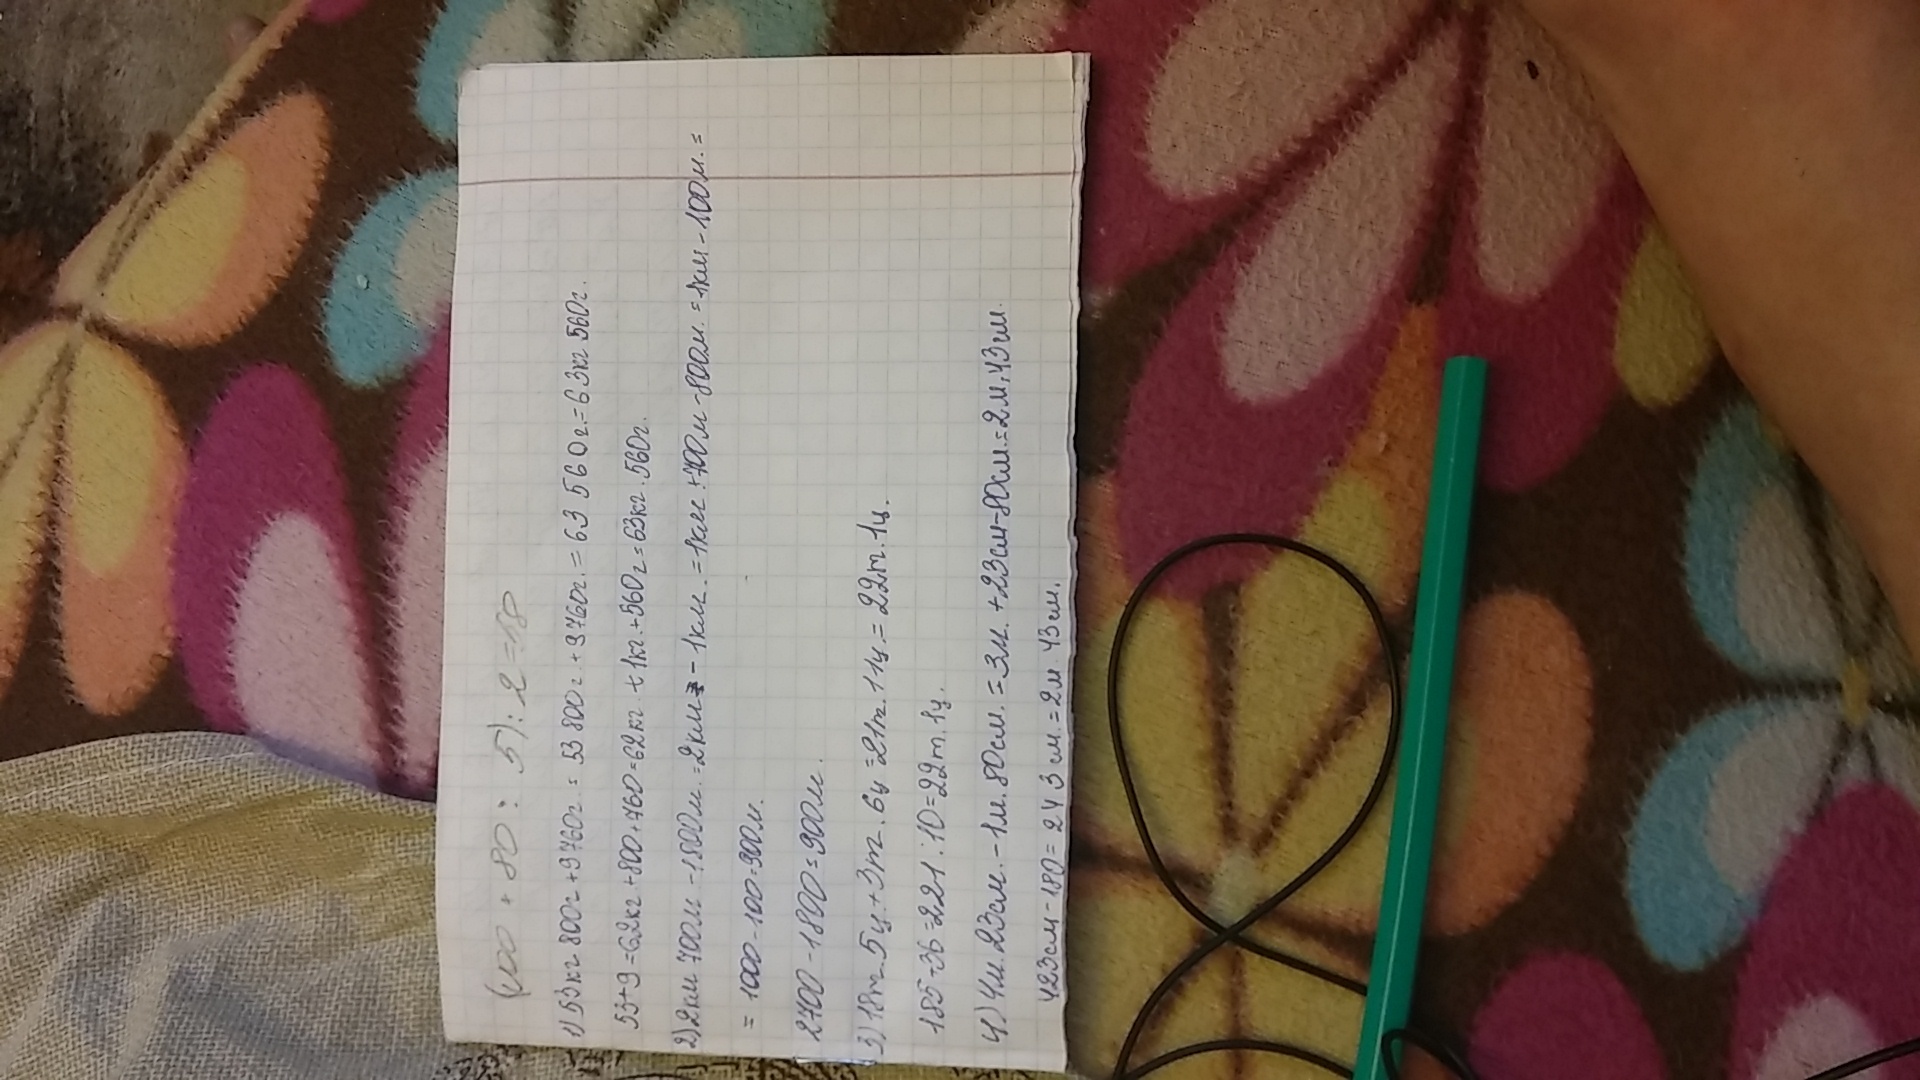 (100 + 80 : 5) : 2 = 58
1) 53кг 800г + 9760г. = 53 800г + 9760г. = 63 560г. = 63кг 560г.
53+9=62кг +800+760=62кг + 1кг.+560г=63кг.560г.
2) 2км 700м - 1800м. = 2км - 1км. = 1км.+700м - 800м. = 1км - 100м. =
= 1000 - 100=900м.
2700 - 1800=900м.
3) 18т 5ц + 3т. 6ц = 21т. 11ц. = 22т. 1ц.
185+36=221:10=22т.1ц.
4) 4м. 23см. - 1м. 80см. = 3м. +23см-80см.=2м.43см.
423см-180= 243см.=2м. 43см.